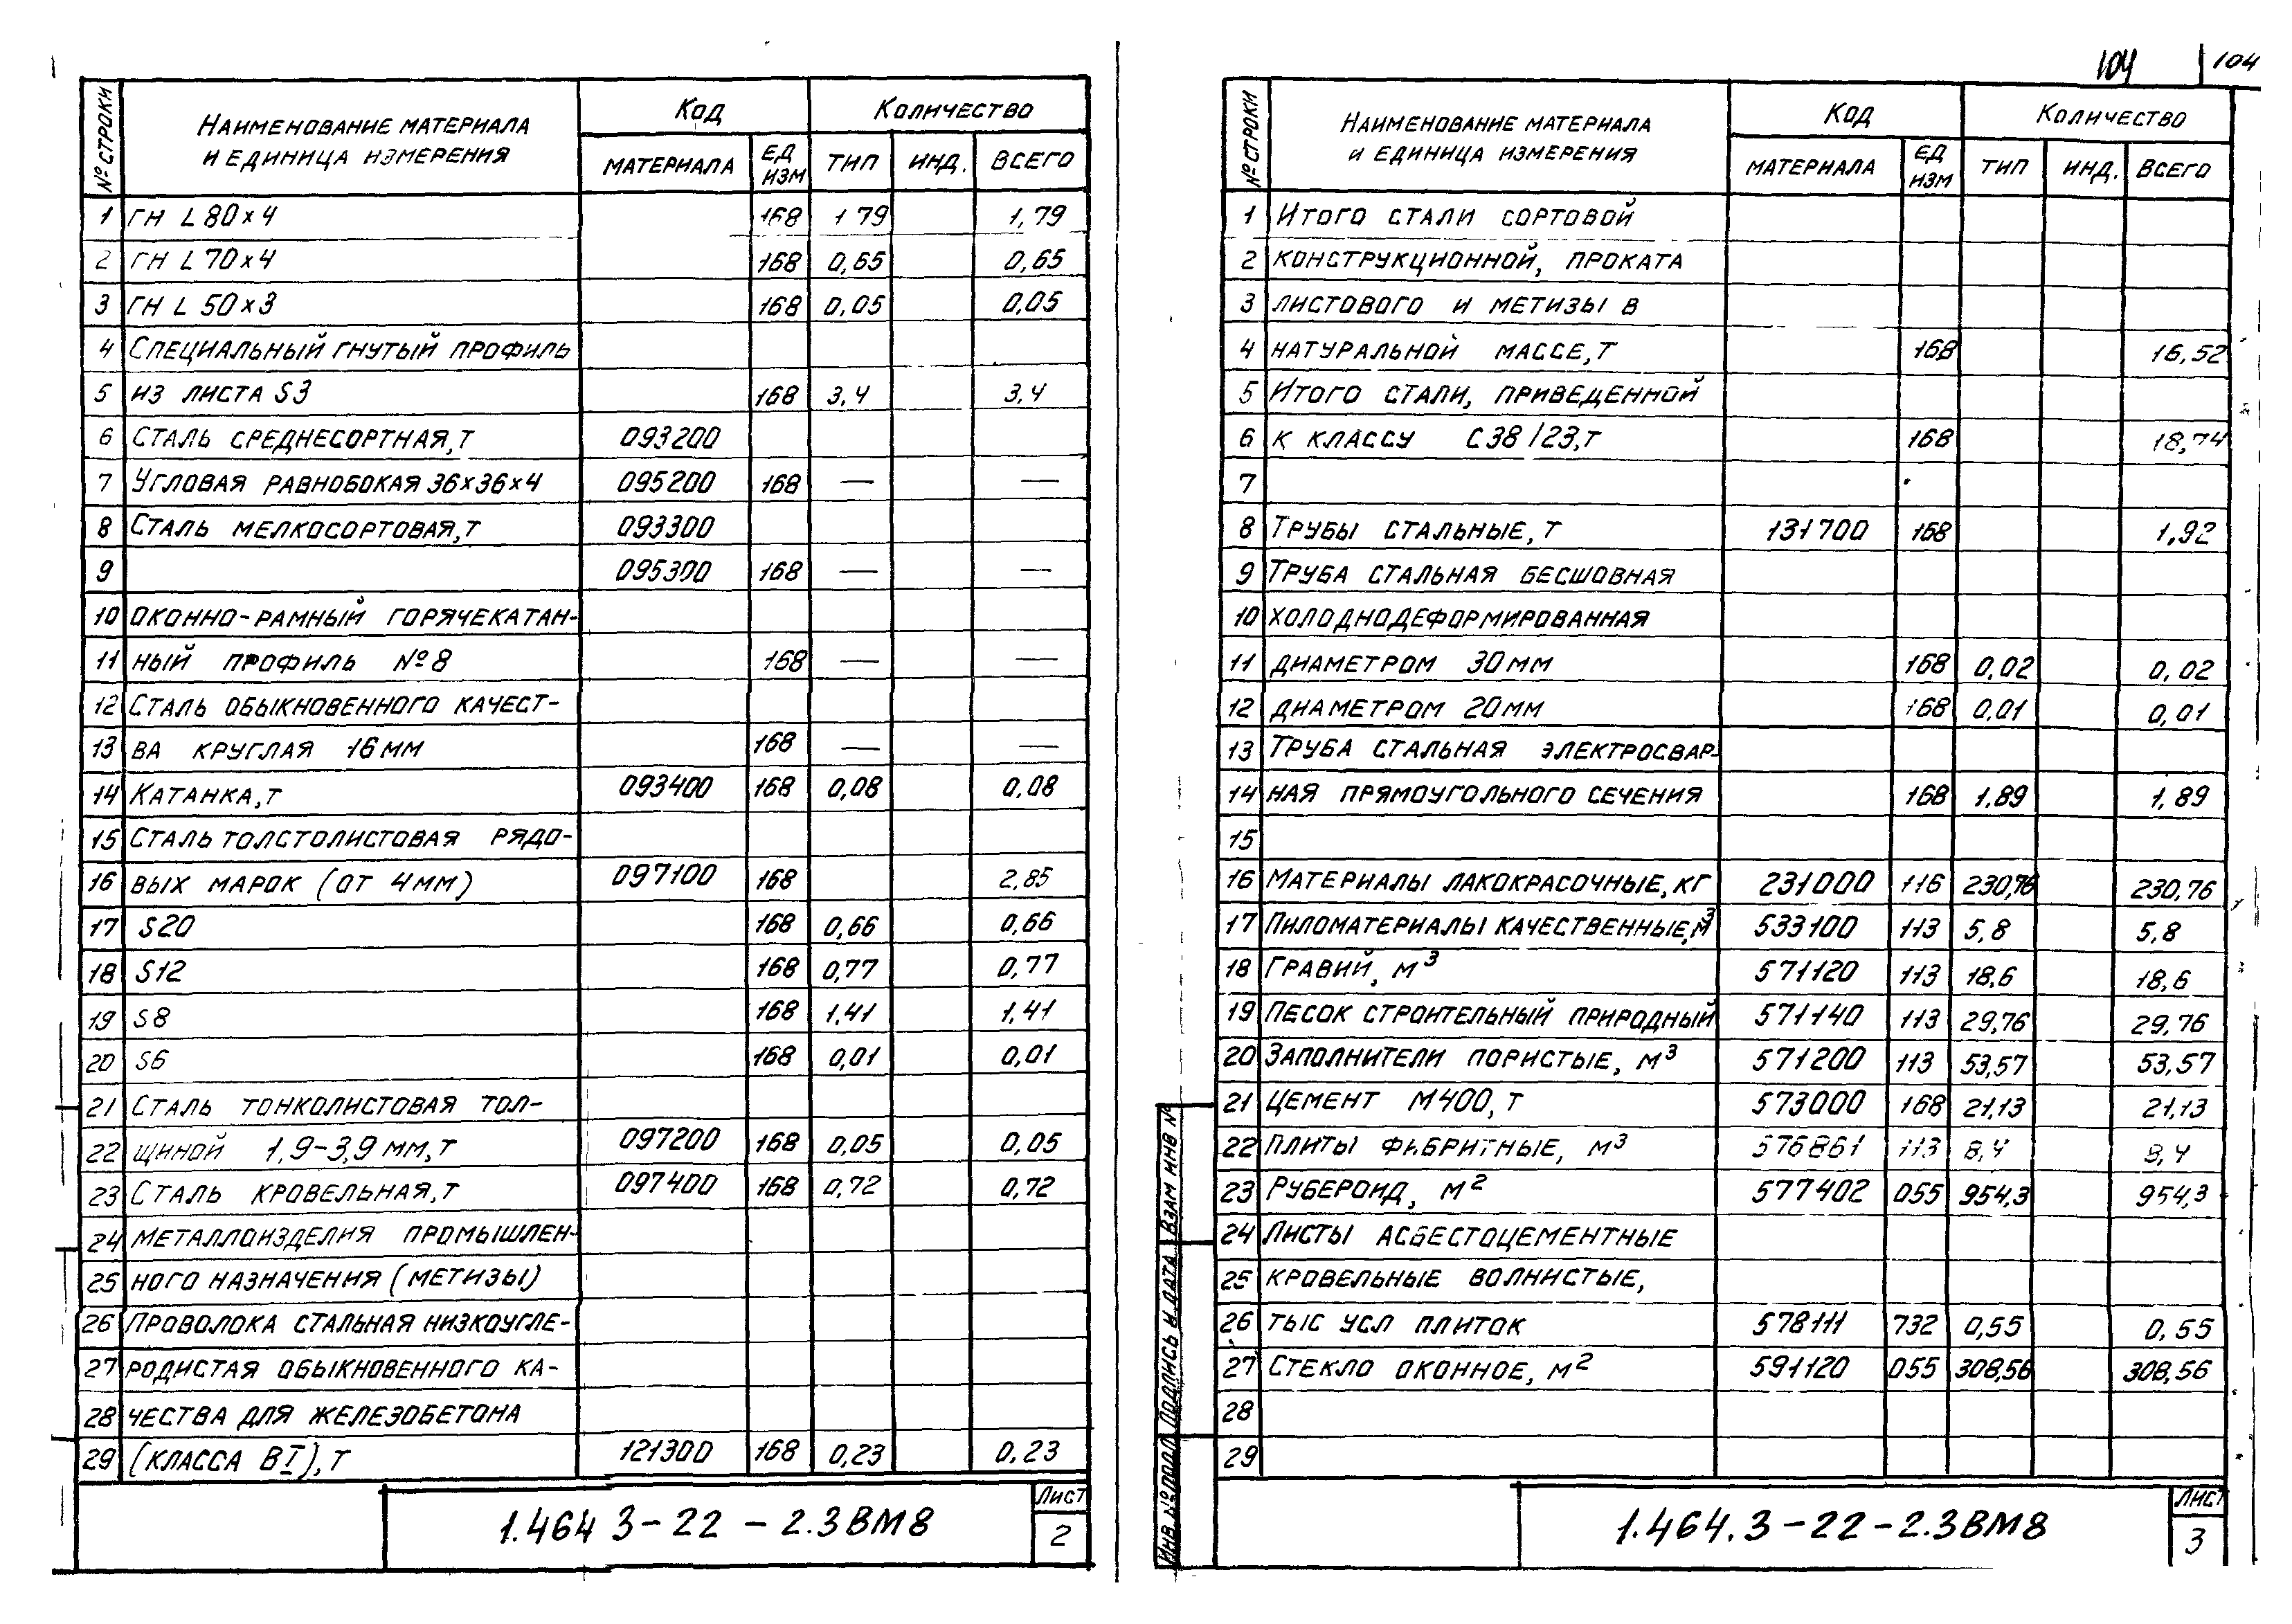 № СТРОКИ НАИМЕНОВАНИЕ МАТЕРИАЛА И ЕДИНИЦА ИЗМЕРЕНИЯ КОД КОЛИЧЕСТВО
МАТЕРИАЛА ЕД ИЗМ ТИП ИНД. ВСЕГО
1 ГН L 80×4 168 1 79 1,79
2 ГН L 70×4 168 0,65 0,65
3 ГН L 50×3 168 0,05 0,05
4 СПЕЦИАЛЬНЫЙ ГНУТЫЙ ПРОФИЛЬ
5 ИЗ ЛИСТА S3 168 3,4 3,4
6 СТАЛЬ СРЕДНЕСОРТНАЯ, Т 093200
7 УГЛОВАЯ РАВНОБОКАЯ 36×36×4 095200 168 — —
8 СТАЛЬ МЕЛКОСОРТОВАЯ, Т 093300
9 095300 168 — —
10 ОКОННО-РАМНЫЙ ГОРЯЧЕКАТАН-
11 НЫЙ ПРОФИЛЬ №8 168 — —
12 СТАЛЬ ОБЫКНОВЕННОГО КАЧЕСТ-
13 ВА КРУГЛАЯ 16ММ 168 — —
14 КАТАНКА, Т 093400 168 0,08 0,08
15 СТАЛЬ ТОЛСТОЛИСТОВАЯ РЯДО-
16 ВЫХ МАРОК (ОТ 4ММ) 097100 168 2,85
17 S20 168 0,66 0,66
18 S12 168 0,77 0,77
19 S8 168 1,41 1,41
20 S6 168 0,01 0,01
21 СТАЛЬ ТОНКОЛИСТОВАЯ ТОЛ-
22 ЩИНОЙ 1,9-3,9 ММ, Т 097200 168 0,05 0,05
23 СТАЛЬ КРОВЕЛЬНАЯ, Т 097400 168 0,72 0,72
24 МЕТАЛЛОИЗДЕЛИЯ ПРОМЫШЛЕН-
25 НОГО НАЗНАЧЕНИЯ (МЕТИЗЫ)
26 ПРОВОЛОКА СТАЛЬНАЯ НИЗКОУГЛЕ-
27 РОДИСТАЯ ОБЫКНОВЕННОГО КА-
28 ЧЕСТВА ДЛЯ ЖЕЛЕЗОБЕТОНА
29 (КЛАССА ВI), Т 121300 168 0,23 0,23
1.464 3-22-2.3ВМ8
ЛИСТ
2
104 104
№ СТРОКИ НАИМЕНОВАНИЕ МАТЕРИАЛА И ЕДИНИЦА ИЗМЕРЕНИЯ КОД КОЛИЧЕСТВО
МАТЕРИАЛА ЕД ИЗМ ТИП ИНД. ВСЕГО
1 ИТОГО СТАЛИ СОРТОВОЙ
2 КОНСТРУКЦИОННОЙ, ПРОКАТА
3 ЛИСТОВОГО И МЕТИЗЫ В
4 НАТУРАЛЬНОЙ МАССЕ, Т 168 16,52
5 ИТОГО СТАЛИ, ПРИВЕДЕННОЙ
6 К КЛАССУ С38/23, Т 168 18,74
7
8 ТРУБЫ СТАЛЬНЫЕ, Т 131700 168 1,92
9 ТРУБА СТАЛЬНАЯ БЕСШОВНАЯ
10 ХОЛОДНОДЕФОРМИРОВАННАЯ
11 ДИАМЕТРОМ 30ММ 168 0,02 0,02
12 ДИАМЕТРОМ 20ММ 168 0,01 0,01
13 ТРУБА СТАЛЬНАЯ ЭЛЕКТРОСВАР-
14 НАЯ ПРЯМОУГОЛЬНОГО СЕЧЕНИЯ 168 1,89 1,89
15
16 МАТЕРИАЛЫ ЛАКОКРАСОЧНЫЕ, КГ 231000 116 230,76 230,76
17 ПИЛОМАТЕРИАЛЫ КАЧЕСТВЕННЫЕ, М³ 533100 113 5,8 5,8
18 ГРАВИЙ, М³ 571120 113 18,6 18,6
19 ПЕСОК СТРОИТЕЛЬНЫЙ ПРИРОДНЫЙ 571140 113 29,76 29,76
20 ЗАПОЛНИТЕЛИ ПОРИСТЫЕ, М³ 571200 113 53,57 53,57
21 ЦЕМЕНТ М400, Т 573000 168 21,13 21,13
22 ПЛИТЫ ФИБРИТНЫЕ, М³ 576861 113 8,4 8,4
23 РУБЕРОИД, М² 577402 055 954,3 954,3
24 ЛИСТЫ АСБЕСТОЦЕМЕНТНЫЕ
25 КРОВЕЛЬНЫЕ ВОЛНИСТЫЕ,
26 ТЫС УСЛ ПЛИТОК 578111 732 0,55 0,55
27 СТЕКЛО ОКОННОЕ, М² 591120 055 308,56 308,56
28
29
ИНВ. № ПОДЛ. ПОДПИСЬ И ДАТА ВЗАМ ИНВ №
1.464.3-22-2.3ВМ8
ЛИСТ
3